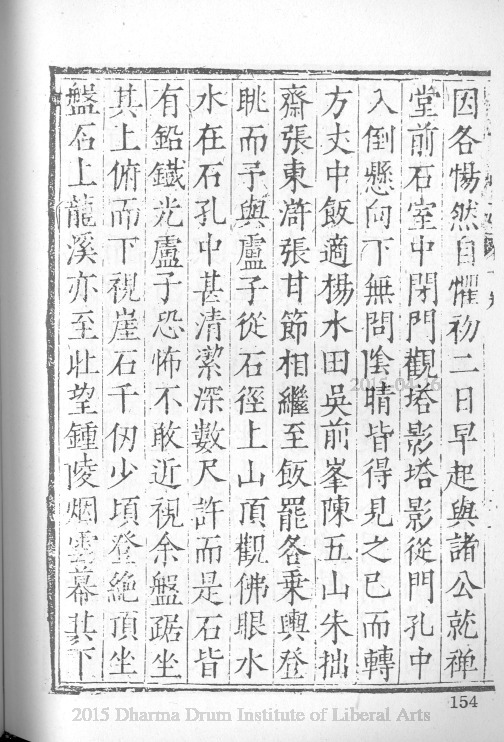 因各惕然自懼初二日早起與諸公就禪
堂前石室中閉門觀塔影塔影從門孔中
入倒懸向下無間陰晴皆得見之已而轉
方丈中飯適楊水田吳前峯陳五山朱拙
齋張東滸張甘節相繼至飯罷各乗輿登
眺而予與盧子從石徑上山頂觀佛眼水
水在石孔中甚清潔深數尺許而是石皆
有鉛鐵光盧子恐怖不敢近視余盤踞坐
其上俯而下視崖石千仞少頃登絶頂坐
盤石上龍溪亦至北望鍾陵烟雲幕其下
154
2015 Dharma Drum Institute of Liberal Arts